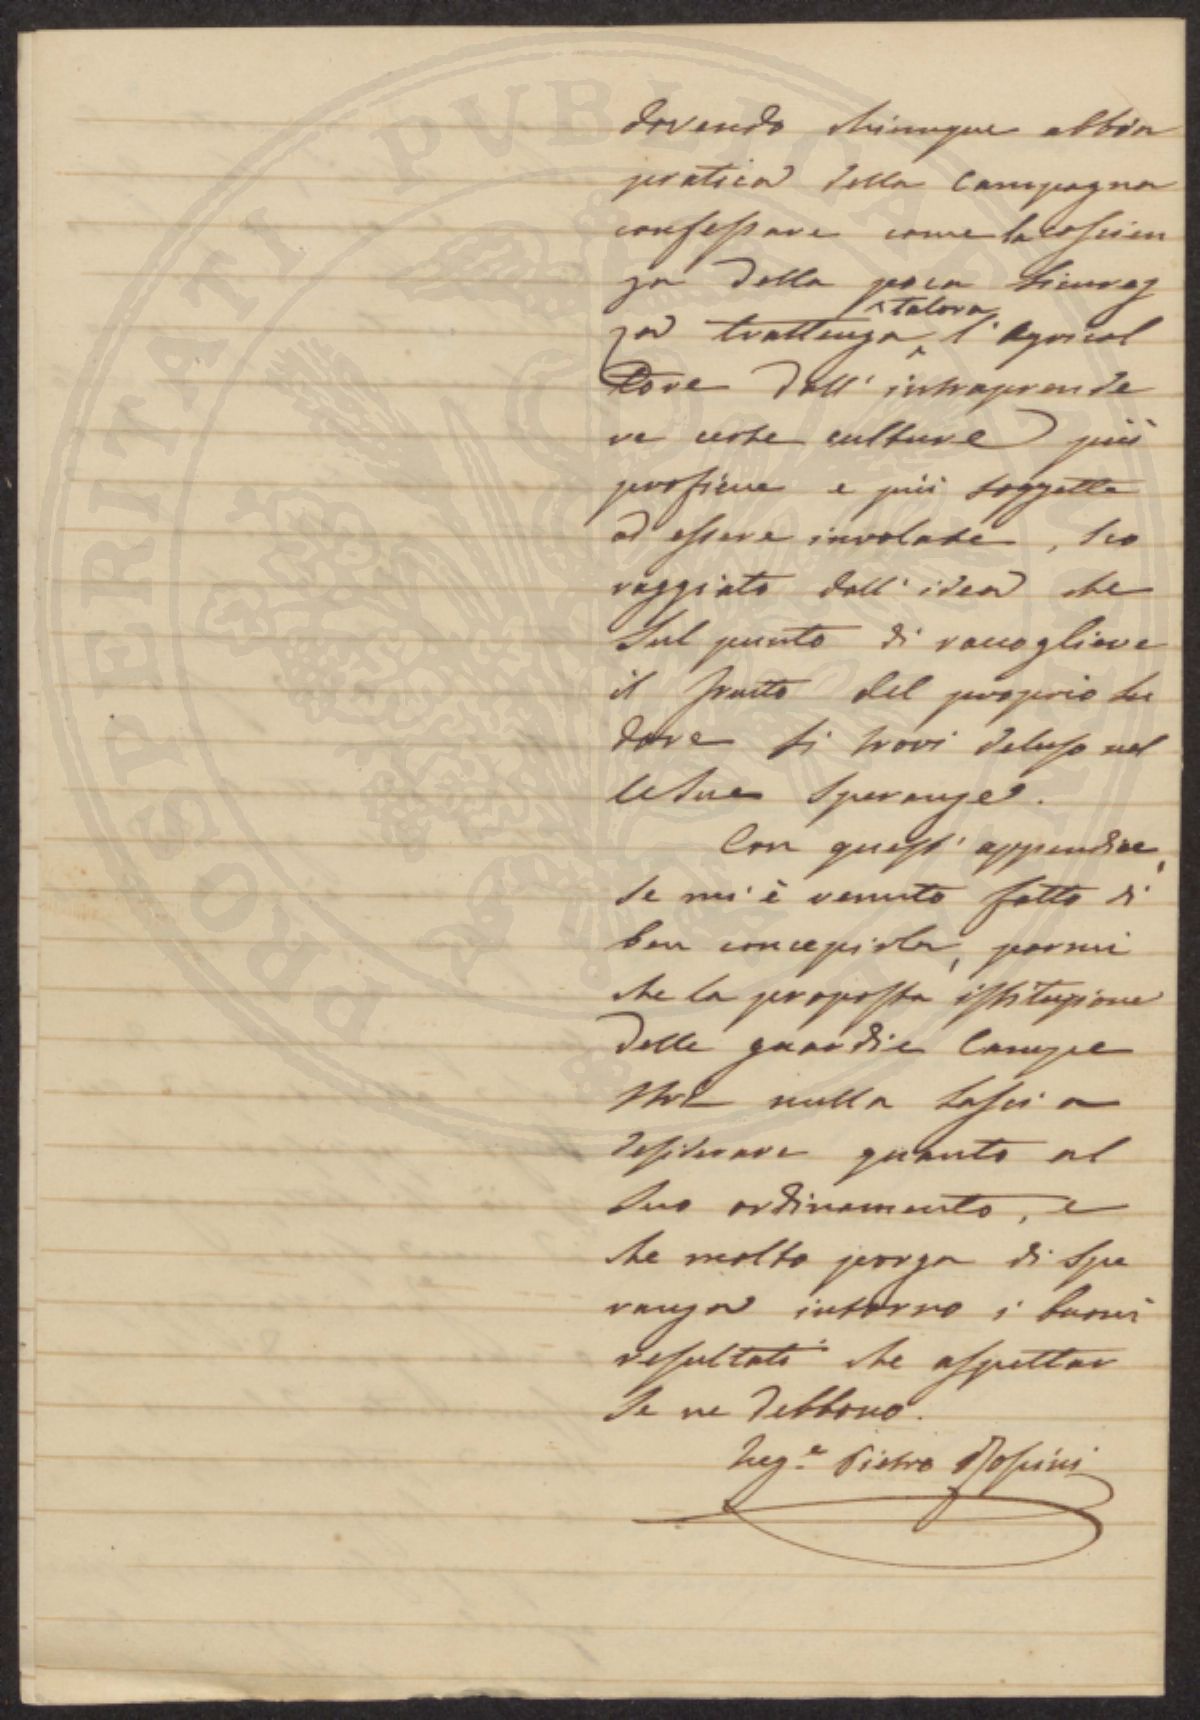 dovendo chiunque abbia
pratica della Campagna
confessare come la coscien
za della poca sicurez
za trattenga talora l'agricol
tore dall'intraprende
re certe culture più
proficue e più soggette
ad essere involate, sco
raggiato dall'idea che
sul punto di raccogliere
il frutto del proprio su
dore si trovi deluso nel
le sue speranze.
Con quest'appendice,
se mi è venuto fatto di
ben concepirla, parmi
che la proposta istituzione
delle guardie Campe
stri nulla lasci a
desiderare quanto al
suo ordinamento, e
che molto porga di spe
ranza intorno i buoni
resultati che aspettar
se ne debbono.
Seg.e Pietro
PROSPERITATI PUBLICAE